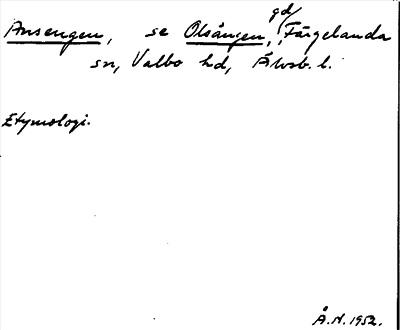 Ansengen, se Olsängen, gd, Färgelanda
sn, Valbo hd, Älvsb. l.
Etymologi.
Å.N. 1952.